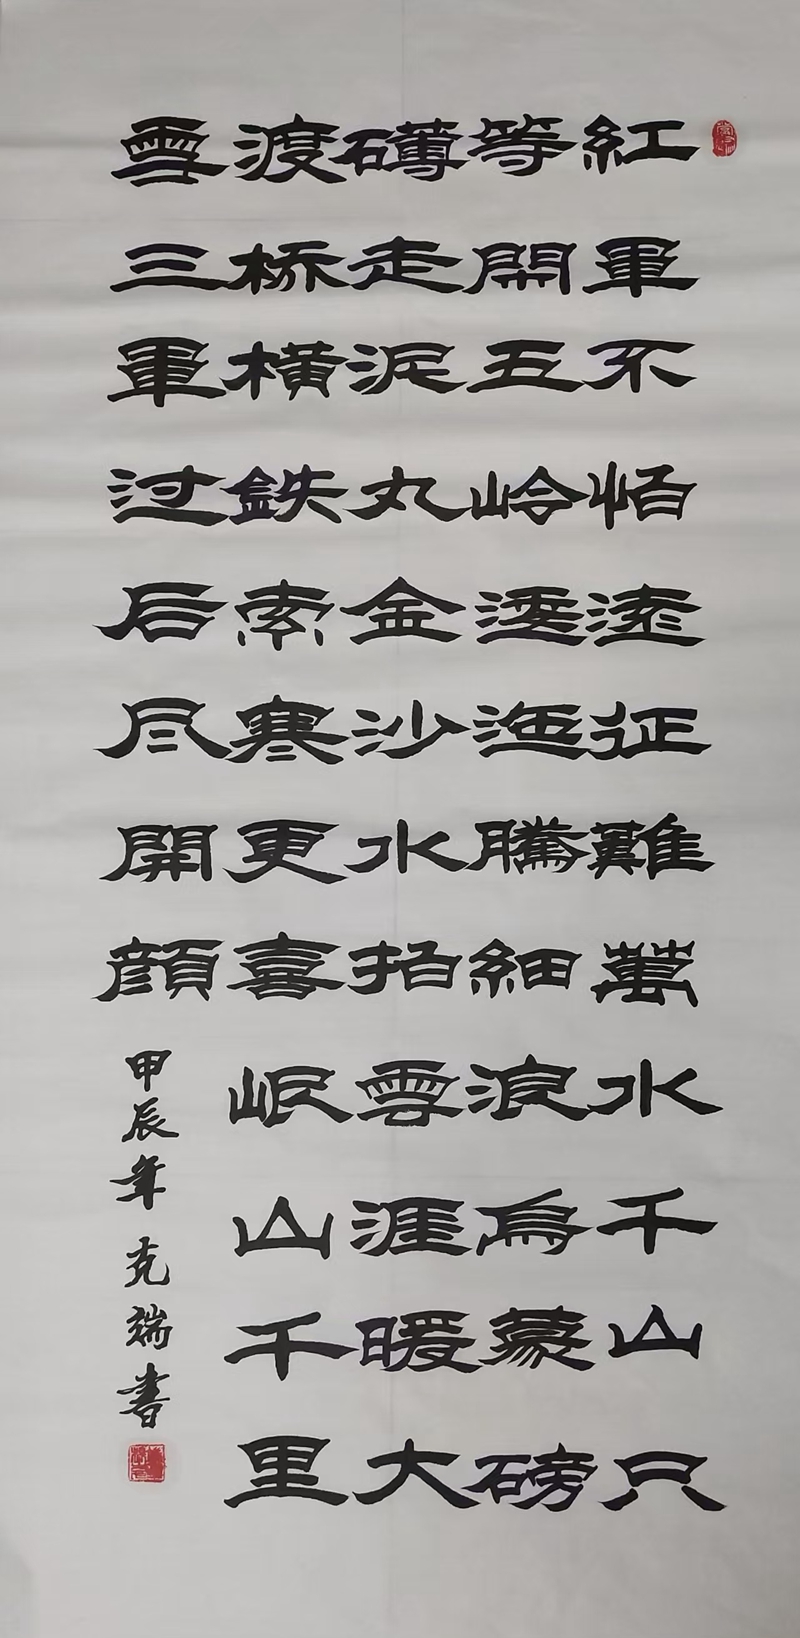 紅軍不怕遠征難萬水千山只
等開五岭逶迤騰細浪烏蒙磅
礴走泥丸金沙水拍雲涯暖大
渡桥横鉄索寒更喜岷山千里
雪三軍过后尽開顔
甲辰年克端書